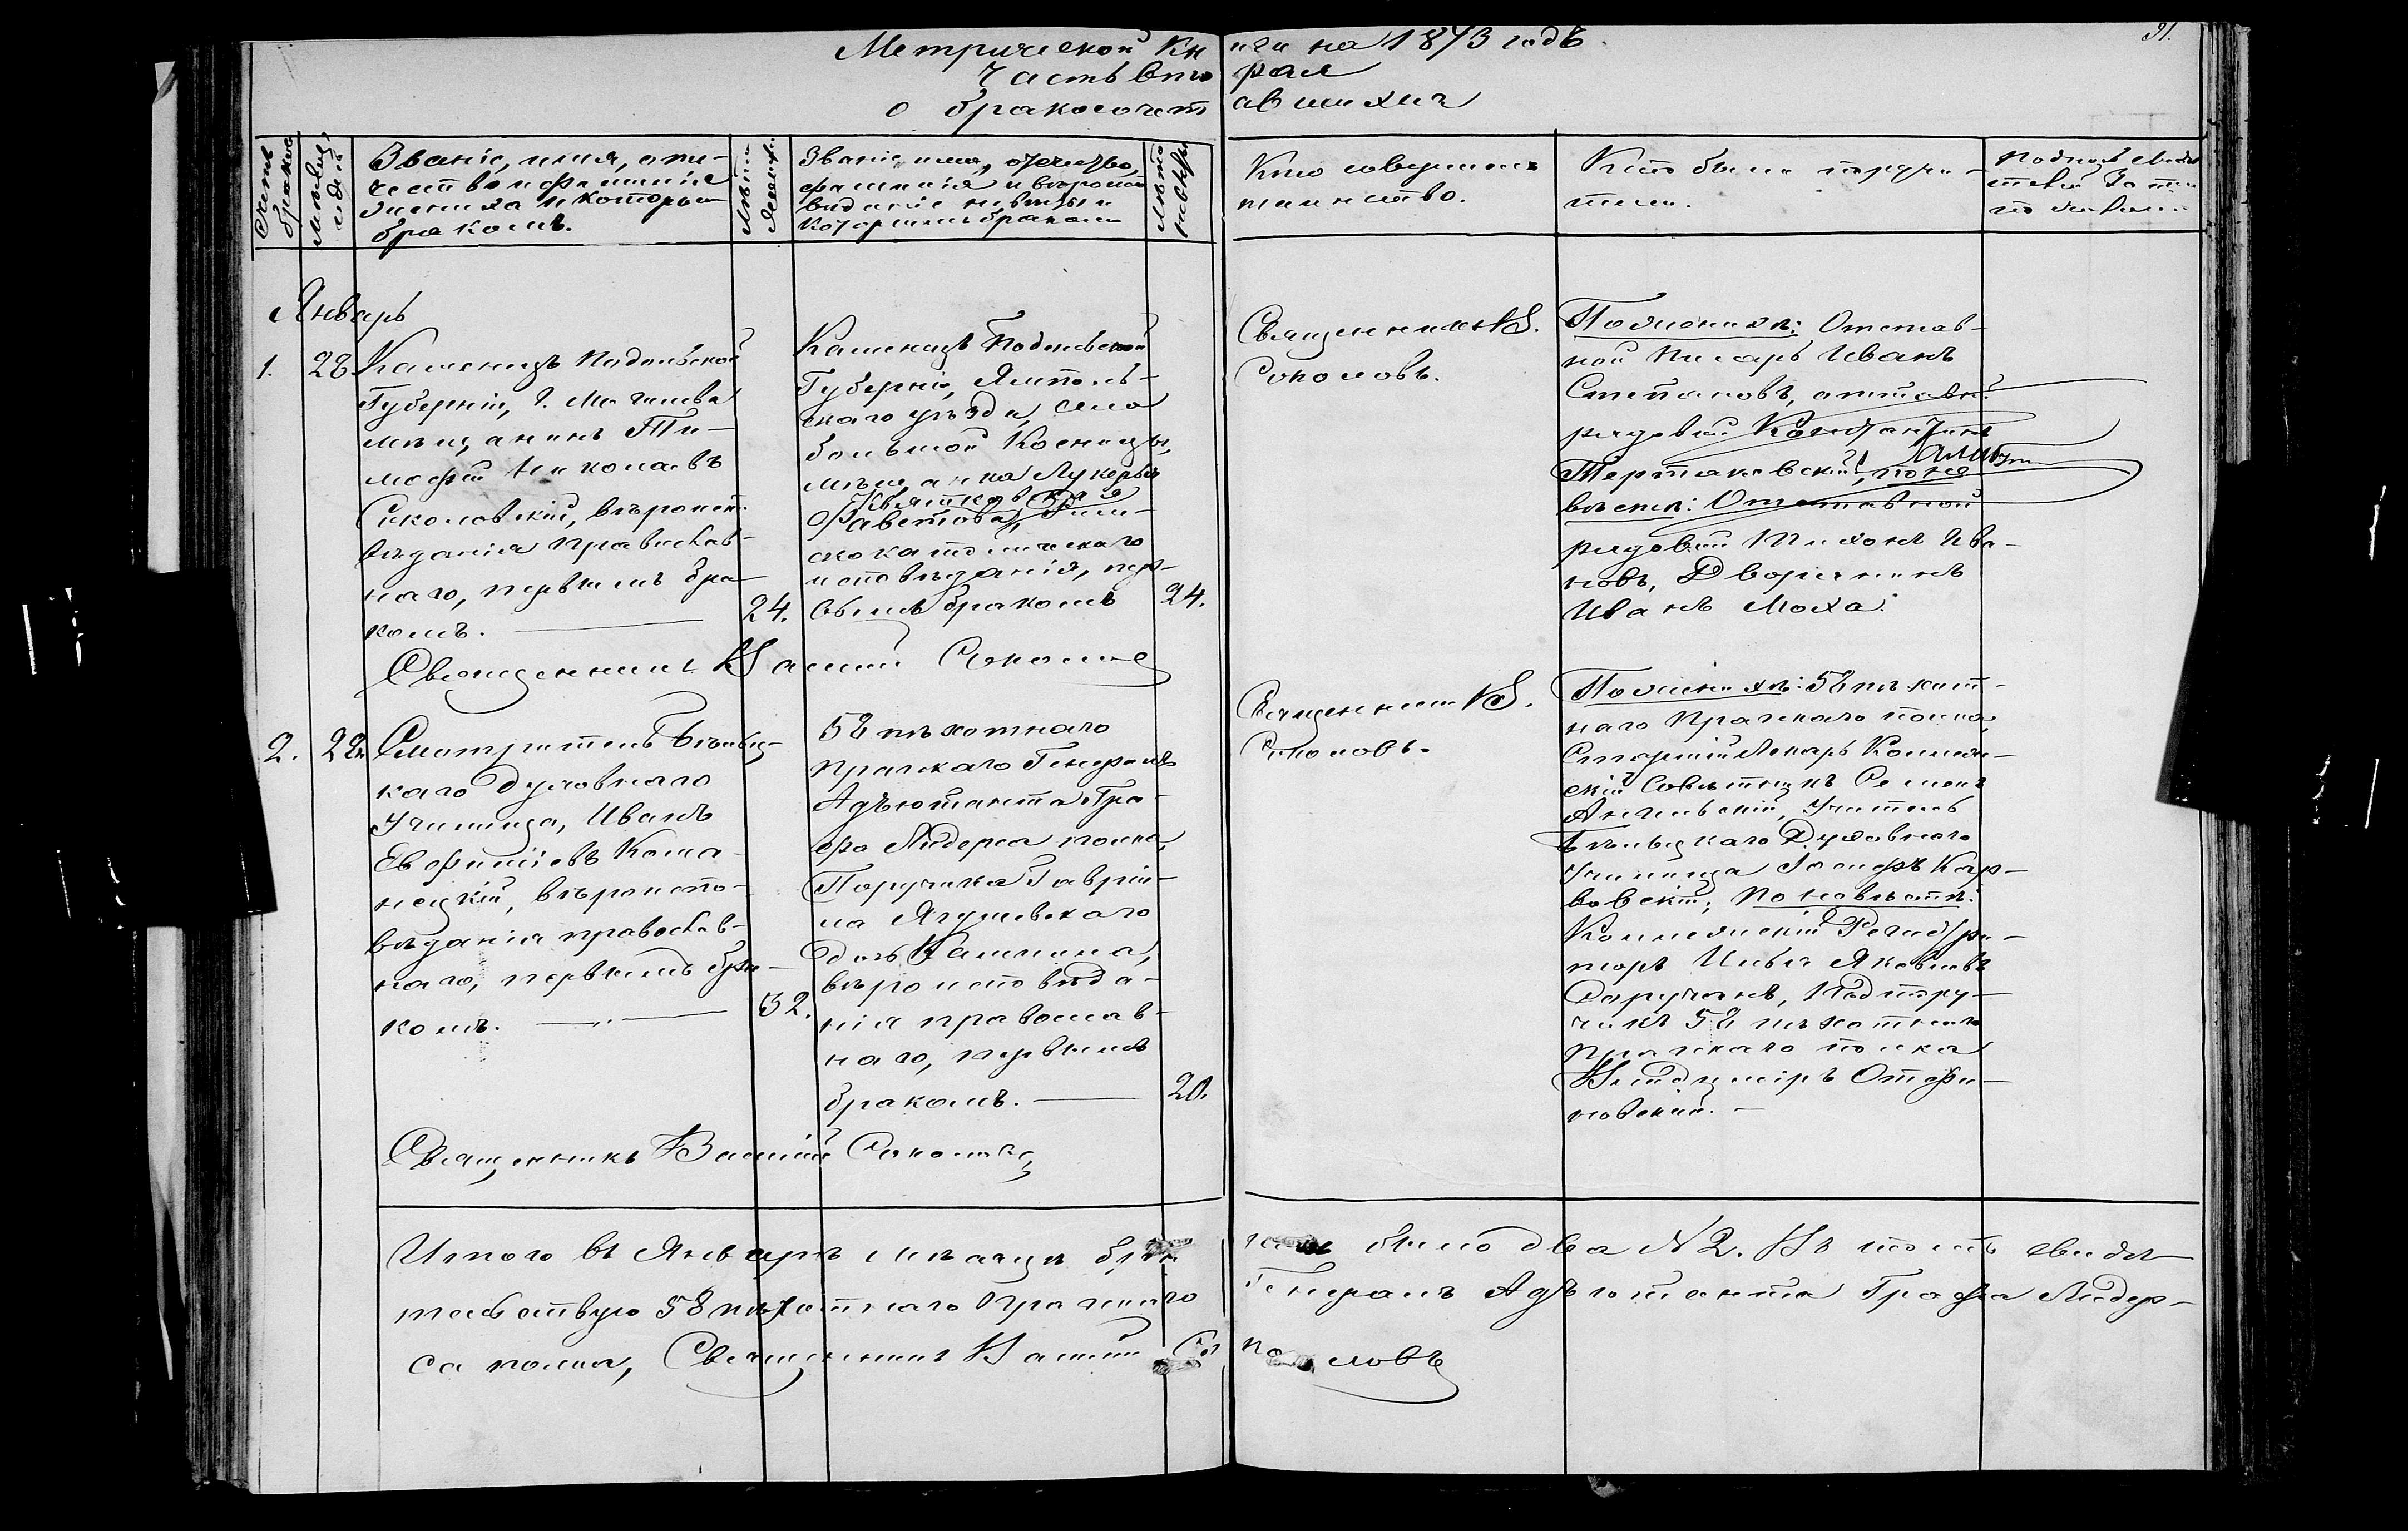 31.
Метрической Книги на 1873 годъ.
Часть вторая
о бракосочетавшихся
Счетъ браковъ
Мѣсяцъ и день
Званіе, имя, оте-
чество и фамилія
жениха и которым
бракомъ.
Лѣта жениха
Званіе, имя, отечество,
фамилія и вѣроиспо
виданіе невѣсты и
которымъ бракомъ
Лѣта невѣсты
Кто совершалъ
таинство.
Кто были поручи-
тели.
Январь
1.
28
Каменецъ Подольской
Губерніи, г. Могилева
мѣщанинъ Ти-
мофей Николаевъ
Соколовскій, вѣроисп.
вѣданія православ-
наго, первымъ бра-
комъ.
24.
Каменецъ Подольской
Губерніи, Ямполь-
скаго уѣзда, села
большой Косницы,
мѣщанка Лукерья
Квятковская
Рим-
скокатолическаго
исповѣданія, пер-
вымъ бракомъ
24.
Священникъ В.
Соколовъ.
По женихѣ: Отстав-
ной писарь Иванъ
Степановъ, отставн.
рядовый Константинъ
по не
вѣстѣ: Отставной
рядовый Тихонъ Ива-
новъ, Дворянинъ
Иванъ Моха.
Священникъ Василій Соколовъ
2.
28.
Смотритель Бѣлец-
каго духовнаго
Училища, Иванъ
Евфиміевъ Кома-
нецкій, вѣроиспо-
вѣданія православ-
наго, первымъ бра-
комъ.
32.
58 пѣхотнаго
Прагскаго Генералъ
Адъютанта Гра-
фа Лидерса полка,
Поручика Гаврiи-
ла Ягушевскаго
дочь Камилла,
вѣроисповѣда-
нія православ-
наго, первымъ
бракомъ.
20.
Священникъ В.
Соколовъ.
По женихѣ: 58 пѣхот-
наго Прагскаго полка,
Старшій Лекарь Коллеж-
скій Совѣтникъ Семенъ
Учитель
Бѣлецкаго Духовнаго
Училища Іосифъ Кар-
вовскій; По невѣстѣ:
Коллежскій Регистра-
торъ Илья Яковлевъ
Подпору-
чикъ 58 пѣхотнаго
Прагскаго полка
Владиміръ Отфи-
новскій.
Священникъ Василій Соколовъ
Итого въ Январѣ мѣсяцѣ бра
было два № 2. Въ томъ свидѣ-
тельствую 58 пѣхотнаго Прагскаго
Генералъ Адъютанта Графа Лидер-
са полка, Священникъ Василій Соколовъ